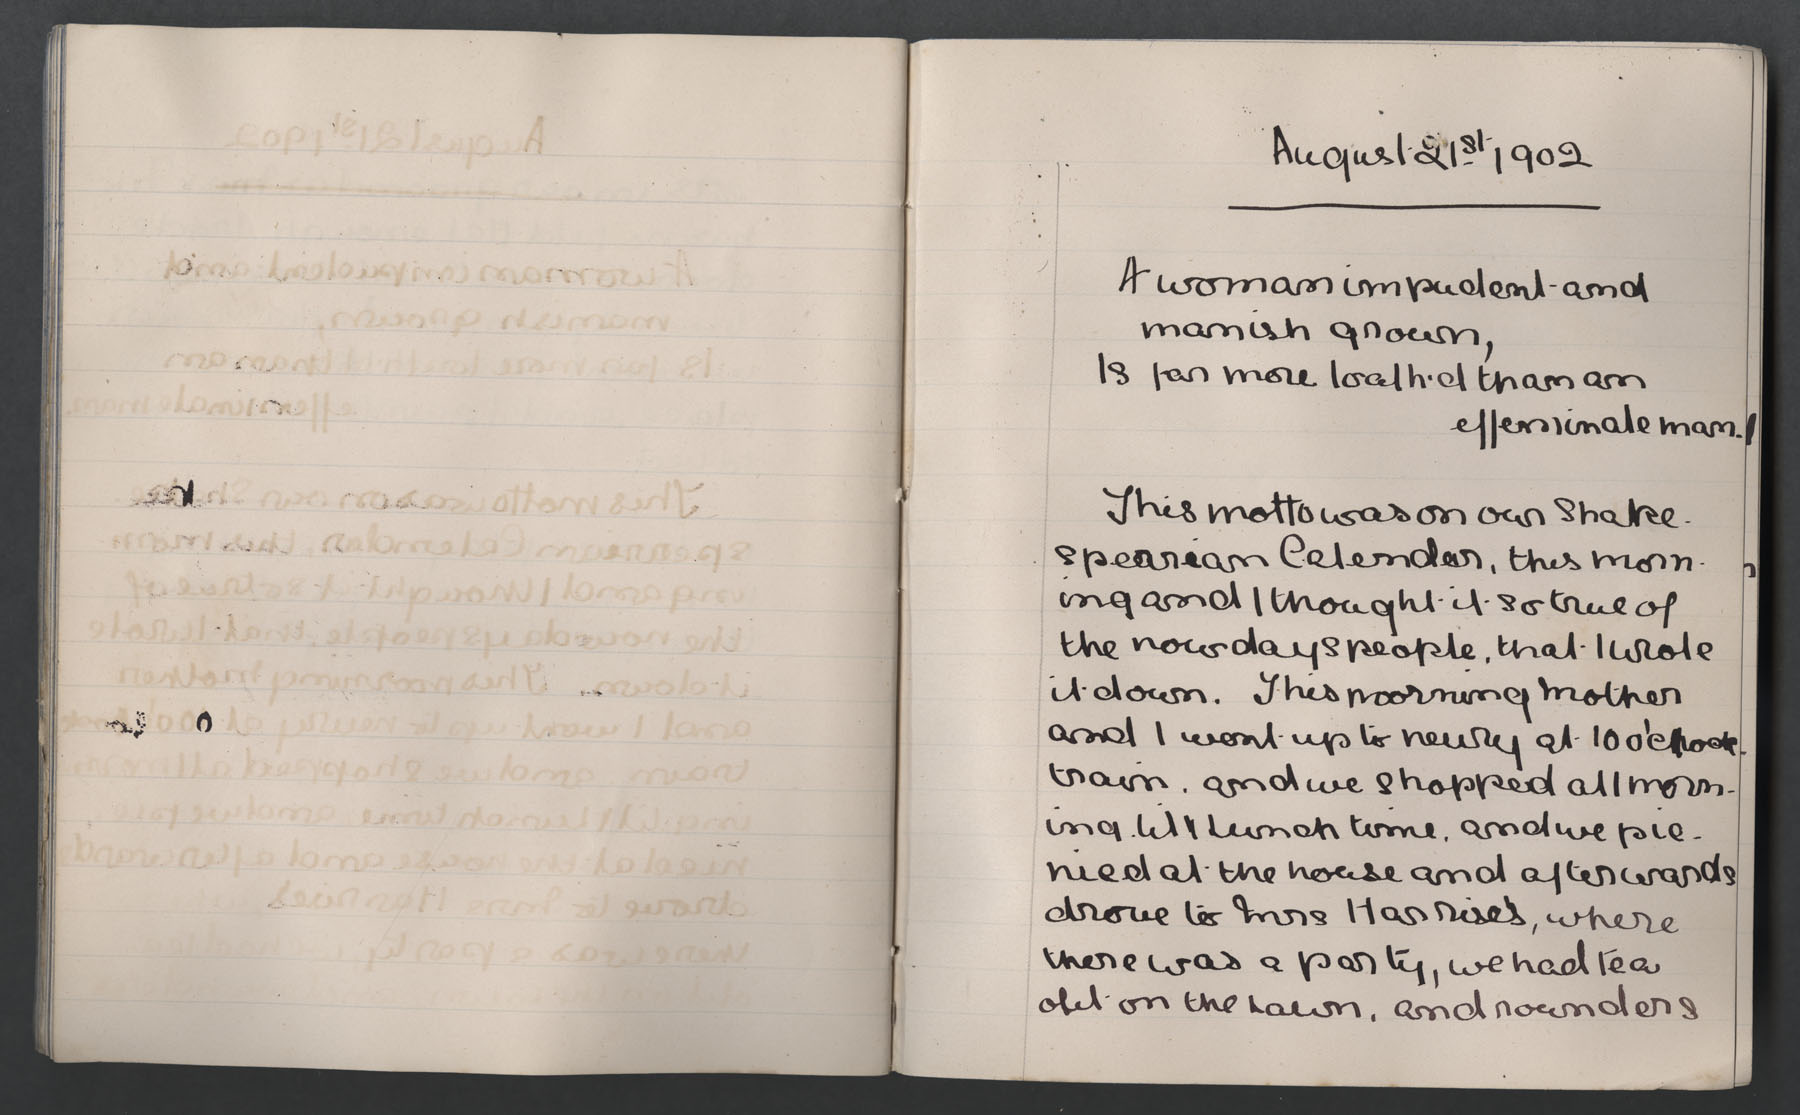 August 21st 1902
A woman impudent and
manish grown,
Is far more loath'd than an
effeminate man.
This motto was on our Shake-
spearian Calendar, this morn-
ing and I thought it so true of
the nowdays people, that I wrote
it down. This morning Mother
and I went up to newry at 10 o'clock
train, and we shopped all morn-
ing till lunch time, and we pic-
niced at the house and afterwards
drove to Mrs Harrises, where
there was a party, we had tea
out on the lawn, and rounders